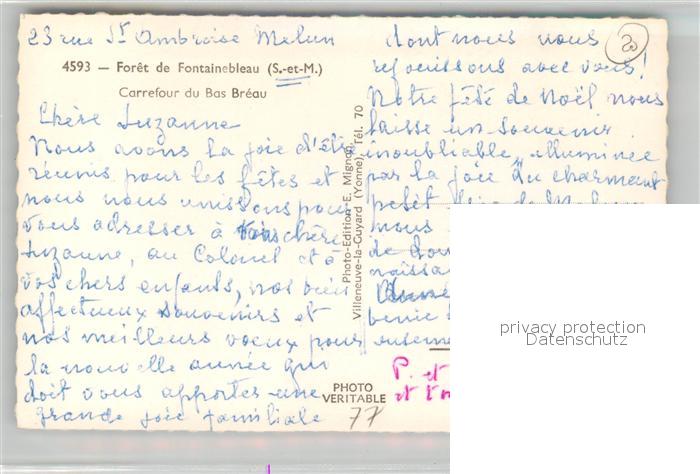 23 rue St Ambroise Melun
4593 — Forêt de Fontainebleau (S.-et-M.)
Carrefour du Bas Bréau
Chère Suzanne
Nous avons la joie d'être
réunis pour les fêtes et
nous nous unissons pour
vous adresser à chère
Suzanne, au Colonel et à
vos chers enfants, nos bien
affectueux souvenirs et
nos meilleurs voeux pour
la nouvelle année qui
doit vous apporter une
grande joie familiale
dont nous nous
rejouissons avec vous!
Notre fête de Noël nous
laisse un souvenir
inoubliable, illuminée
par la joie du charmant
petit
nous
de
naissa
benie
P. et
et
Photo-Edition E. Mignon,
Villeneuve-la-Guyard (Yonne), Tél. 70
PHOTO
VERITABLE
77
20
privacy protection
Datenschutz